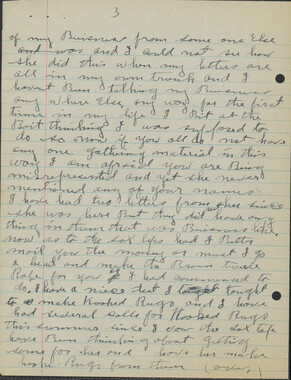 3
of my Buisness from some one Else
and was and I could not see how
she did this when my letters are
all in my own trunk and I
havent Been telling my Buisness
any where Else, any way for the first
time in my life I Bit at the
Bait thinking I was supposed to
do so now if you all do not have
any one gathering material in this
way I am afraid you are Being
misrepresented and yet she never
mentioned any of your names
I have had two letters from she since
she was here But they did have any
thing in them that was Buisness like,
now as to the sox tops had I Better
mail you the money or must I go
a head and make the Brown
for you if I had commenced to
do, I have a niece that I taught
to make Hooked Rugs and I have
had several calls for Hooked Rugs
this summer since I saw the sox tops
have Been thinking about getting
some for her and have her make
Rugs from them (over)